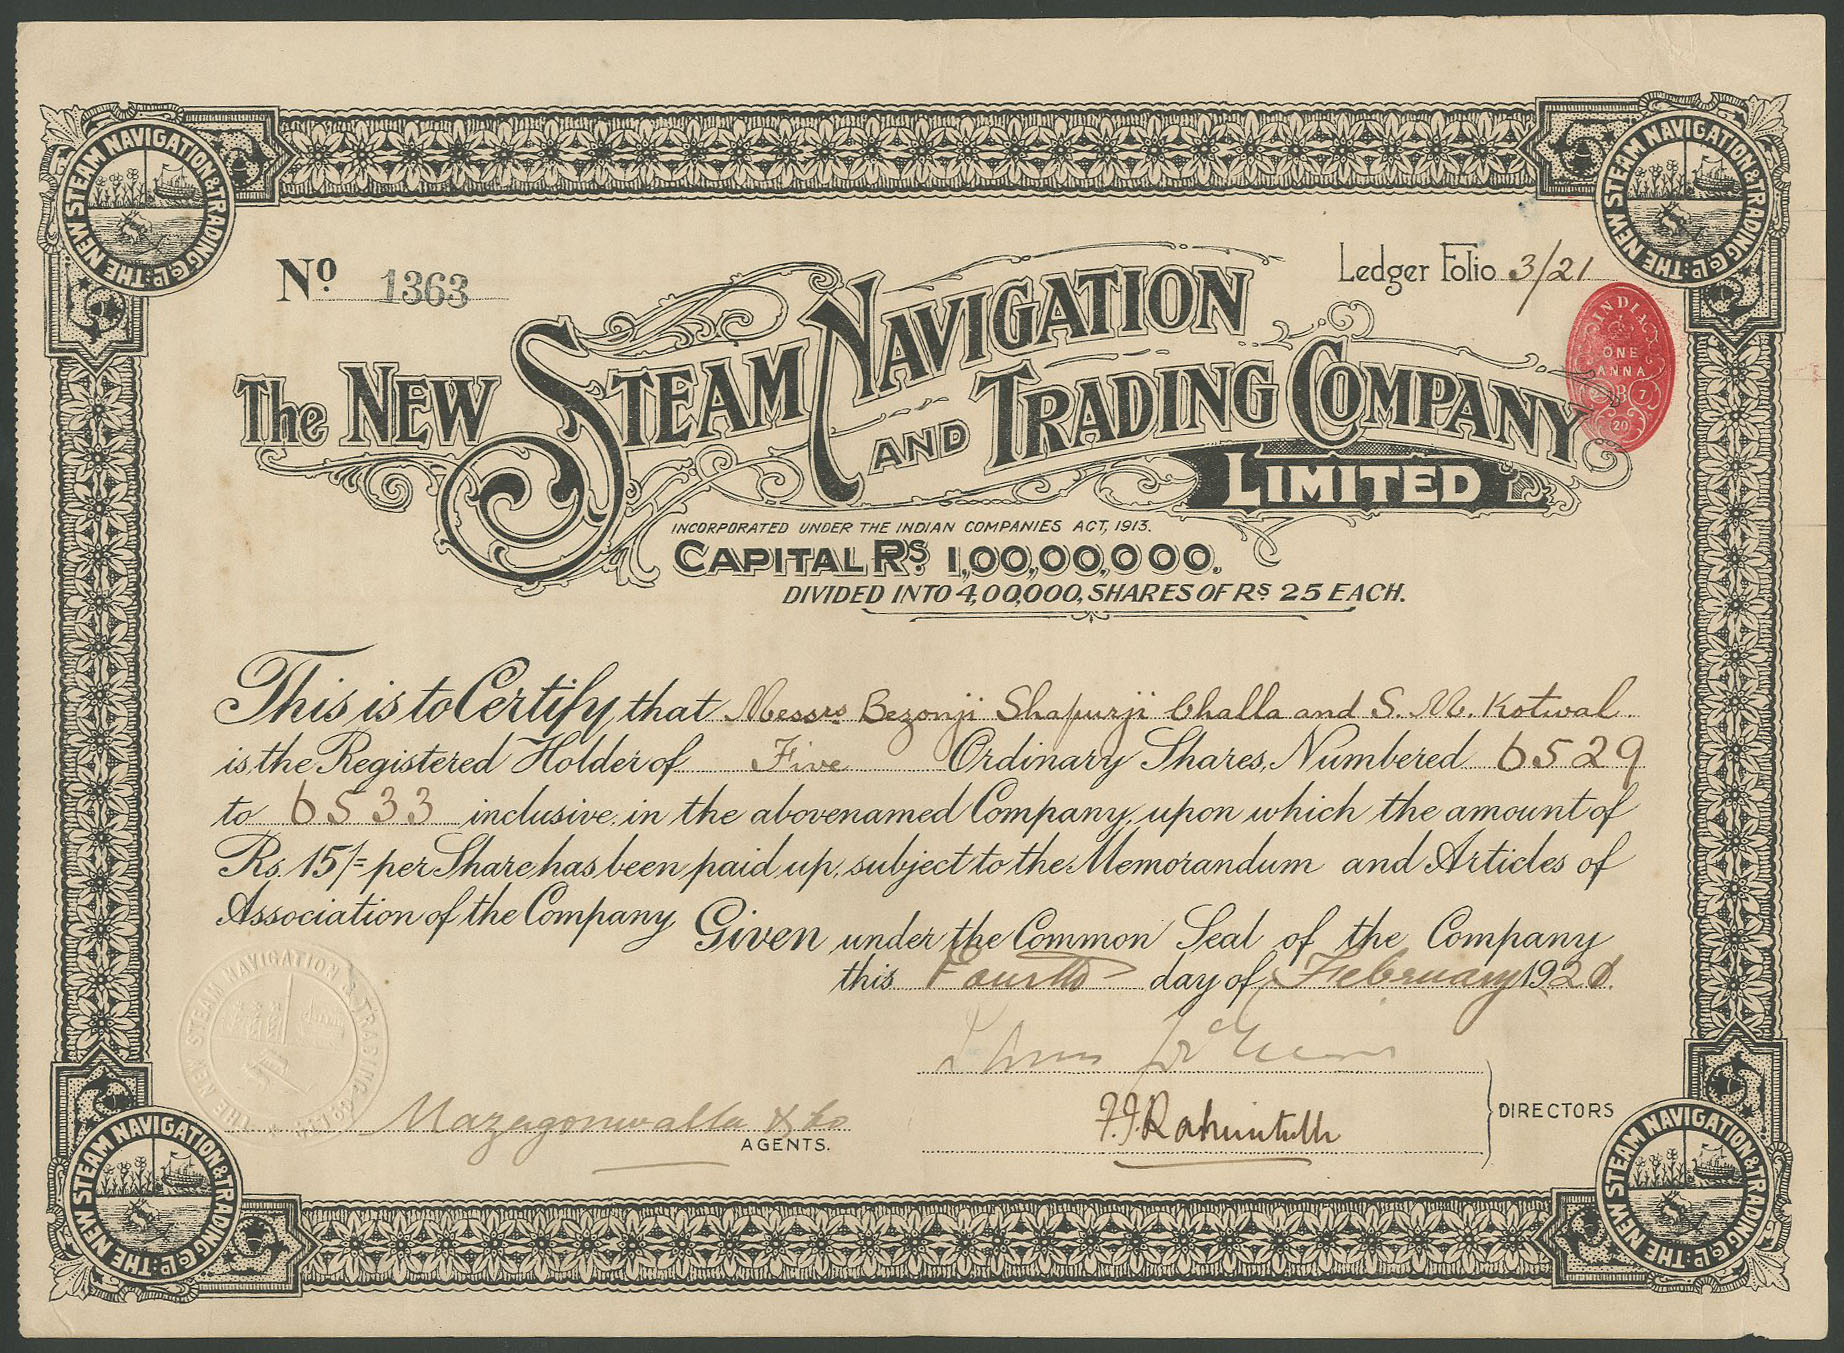 THE NEW STEAM NAVIGATION & TRADING Co Ld:
THE NEW STEAM NAVIGATION & TRADING Co Ld:
No. 1363
Ledger Folio 3/21
INDIA
ONE
ANNA
20
The New Steam Navigation
and Trading Company
Limited
INCORPORATED UNDER THE INDIAN COMPANIES ACT, 1913.
CAPITAL Rs. 1,00,00,000.
DIVIDED INTO 4,00,000, SHARES OF Rs 25 EACH.
This is to Certify, that Messrs Bezonji Shapurji Challa and S. M. Kotwal
is the Registered Holder of Five Ordinary Shares, Numbered 6529
to 6533 inclusive in the abovenamed Company, upon which the amount of
Rs. 15/= per Share has been paid up, subject to the Memorandum and Articles of
Association of the Company. Given under the Common Seal of the Company
this Fourth day of February 192
THE NEW STEAM NAVIGATION & TRADING Co LTD
Mazagonwalla & Co
AGENTS.
F. J. Rahimtulla
DIRECTORS
THE NEW STEAM NAVIGATION & TRADING Co Ld:
THE NEW STEAM NAVIGATION & TRADING Co Ld: